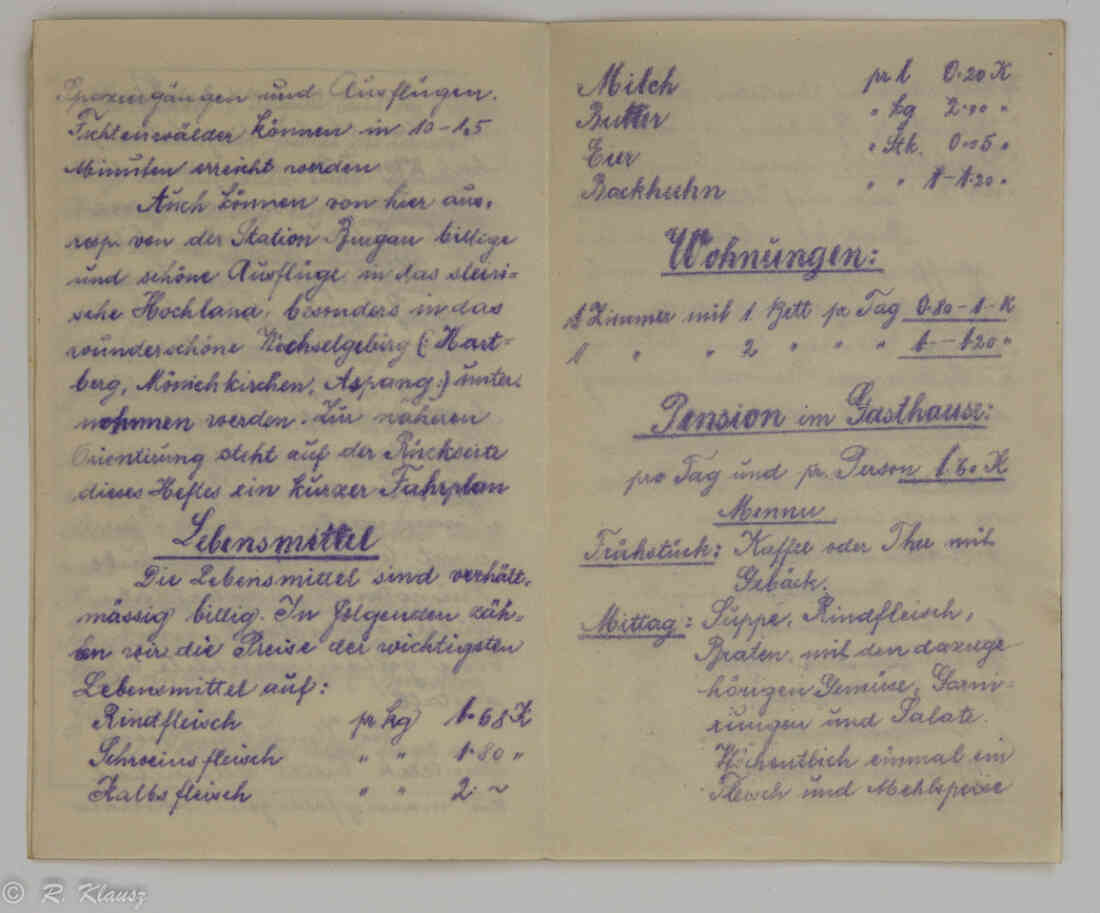 Spaziergängen und Ausflügen.
Fichtenwälder können in 10-15
Minuten erreicht werden
Auch können von hier aus,
resp. von der Station Burgau billige
und schöne Ausflüge in das steiri-
sche Hochland, besonders in das
wunderschöne Wechselgebirg (: Hart-
berg, Mönichkirchen, Aspang :) unter-
nommen werden. Zur näheren
Orientirung steht auf der Rückseite
dieses Heftes ein kurzer Fahrplan
Lebensmittel
Die Lebensmittel sind verhält-
mässig billig. In folgenden zäh-
len wir die Preise der wichtigsten
Lebensmittel auf:
Rindfleisch pr kg 1.68 K
Schweinsfleisch " " 1.80 "
Kalbsfleisch " " 2. ~
Milch pr l 0.20 K
Butter " kg 2.-- "
Eier " Stk. 0.05 "
Backhuhn " " 1-1.20 "
Wohnungen:
1 Zimmer mit 1 Bett pr Tag 0.80-1- K
1 " " 2 " " " 1--1.20 "
Pension im Gasthause:
pro Tag und pr. Person 1.60 K
Mennu
Frühstück: Kaffee oder Thee mit
Gebäck.
Mittag: Suppe, Rindfleisch,
Braten, mit den dazuge-
hörigen Gemüse, Garni-
rungen und Salate.
Wöchentlich einmal ein
Fleisch und Mehlspeise
© R. Klausz